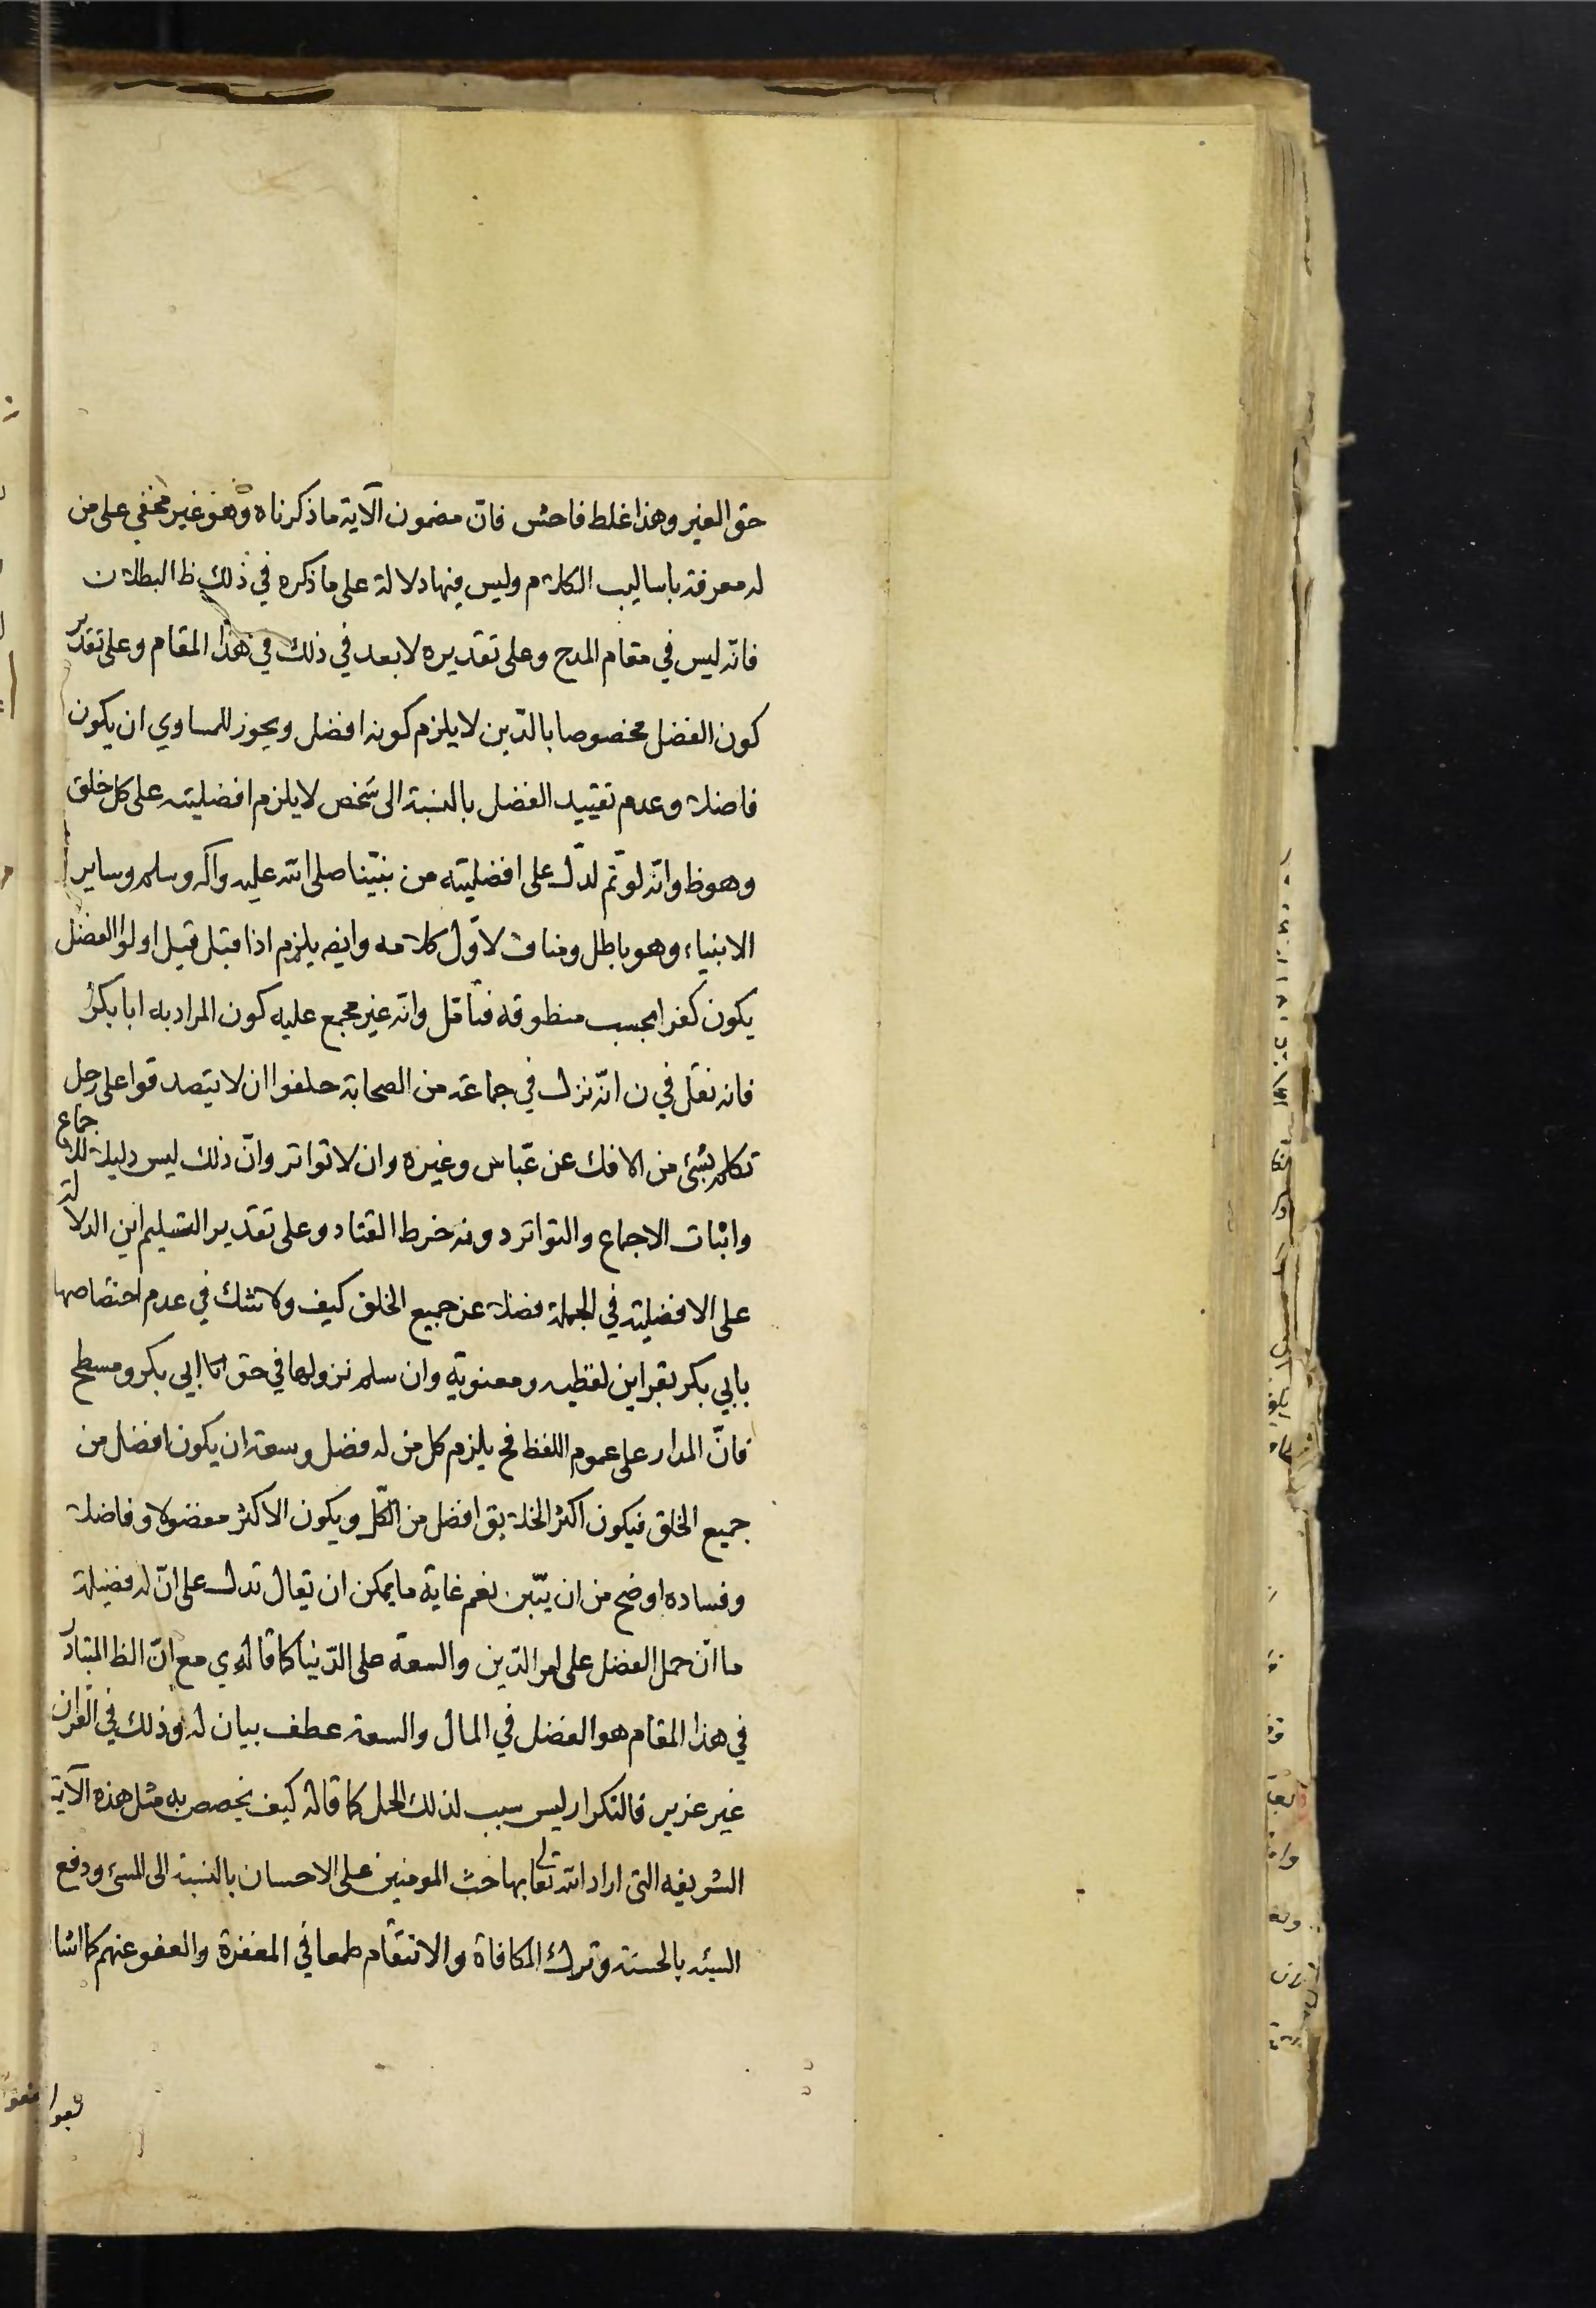 حق الغير وهذا غلط فاحش فان مضمون الآية ما ذكرناه وهو غير مخفي على من
له معرفة باساليب الكلام وليس فيها دلالة على ما ذكره في ذلك ظ البطلان
فانه ليس في مقام المدح وعلى تقديره لا بعد في ذلك في هذا المقام وعلى تقدير
كون الفضل مخصوصا بالدّين لا يلزم كونه افضل ويجوز للمساوي ان يكون
فاضلا وعدم تقييد الفضل بالنسبة الى شخص لا يلزم افضليته على كل خلق
وهو ظ وانه لو تم لدلّ على افضليته من نبيّنا صلى الله عليه وآله وسلم وساير
الانبياء وهو باطل ومناف لاوّل كلامه وايض يلزم اذا قيل قيل اولوا الفضل
يكون كفرا بحسب منطوقه فتأمّل وانه غير مجمع عليه كون المراد به ابا بكر
فانه نقل في ن انّه نزل في جماعة من الصحابة حلفوا ان لا يتصدقوا على رجل
تكلم بشئ من الافك عن عبّاس وغيره وان لا تواتر وانّ ذلك ليس دليلا للاجماع
واثبات الاجماع والتواتر دونه خرط القتاد وعلى تقدير التسليم اين الدلالة
على الافضلية في الجملة فضلا عن جميع الخلق كيف ولا شك في عدم اختصاصها
بابي بكر بقراين لفظيه ومعنوية وان سلم نزولها في حق ابي بكر ومسطح
فانّ المدار على عموم اللفظ فح يلزم كل من له فضل وسعة ان يكون افضل من
جميع الخلق فيكون اكثر الخلايق افضل من الكلّ ويكون الاكثر مفضولا وفاضلا
وفساده اوضح من ان يبّين نعم غاية ما يمكن ان يقال تدل على انّ له فضيلة
ما ان حمل الفضل على امر الدّين والسعة على الدّنيا كما قاله ي مع انّ الظ المتبادر
في هذا المقام هو الفضل في المال والسعة عطف بيان له وذلك في القران
غير عزير فالتكرار ليس سبب لذلك الحمل كما قاله كيف يخصص به مثل هذه الآية
الشريفه التى اراد الله تعالى بها حث المومنين على الاحسان بالنسبة الى المسئ ودفع
السيئه بالحسنة وترك المكافاة والانتقام طمعا في المغفرة والعفو عنهم كما اشا